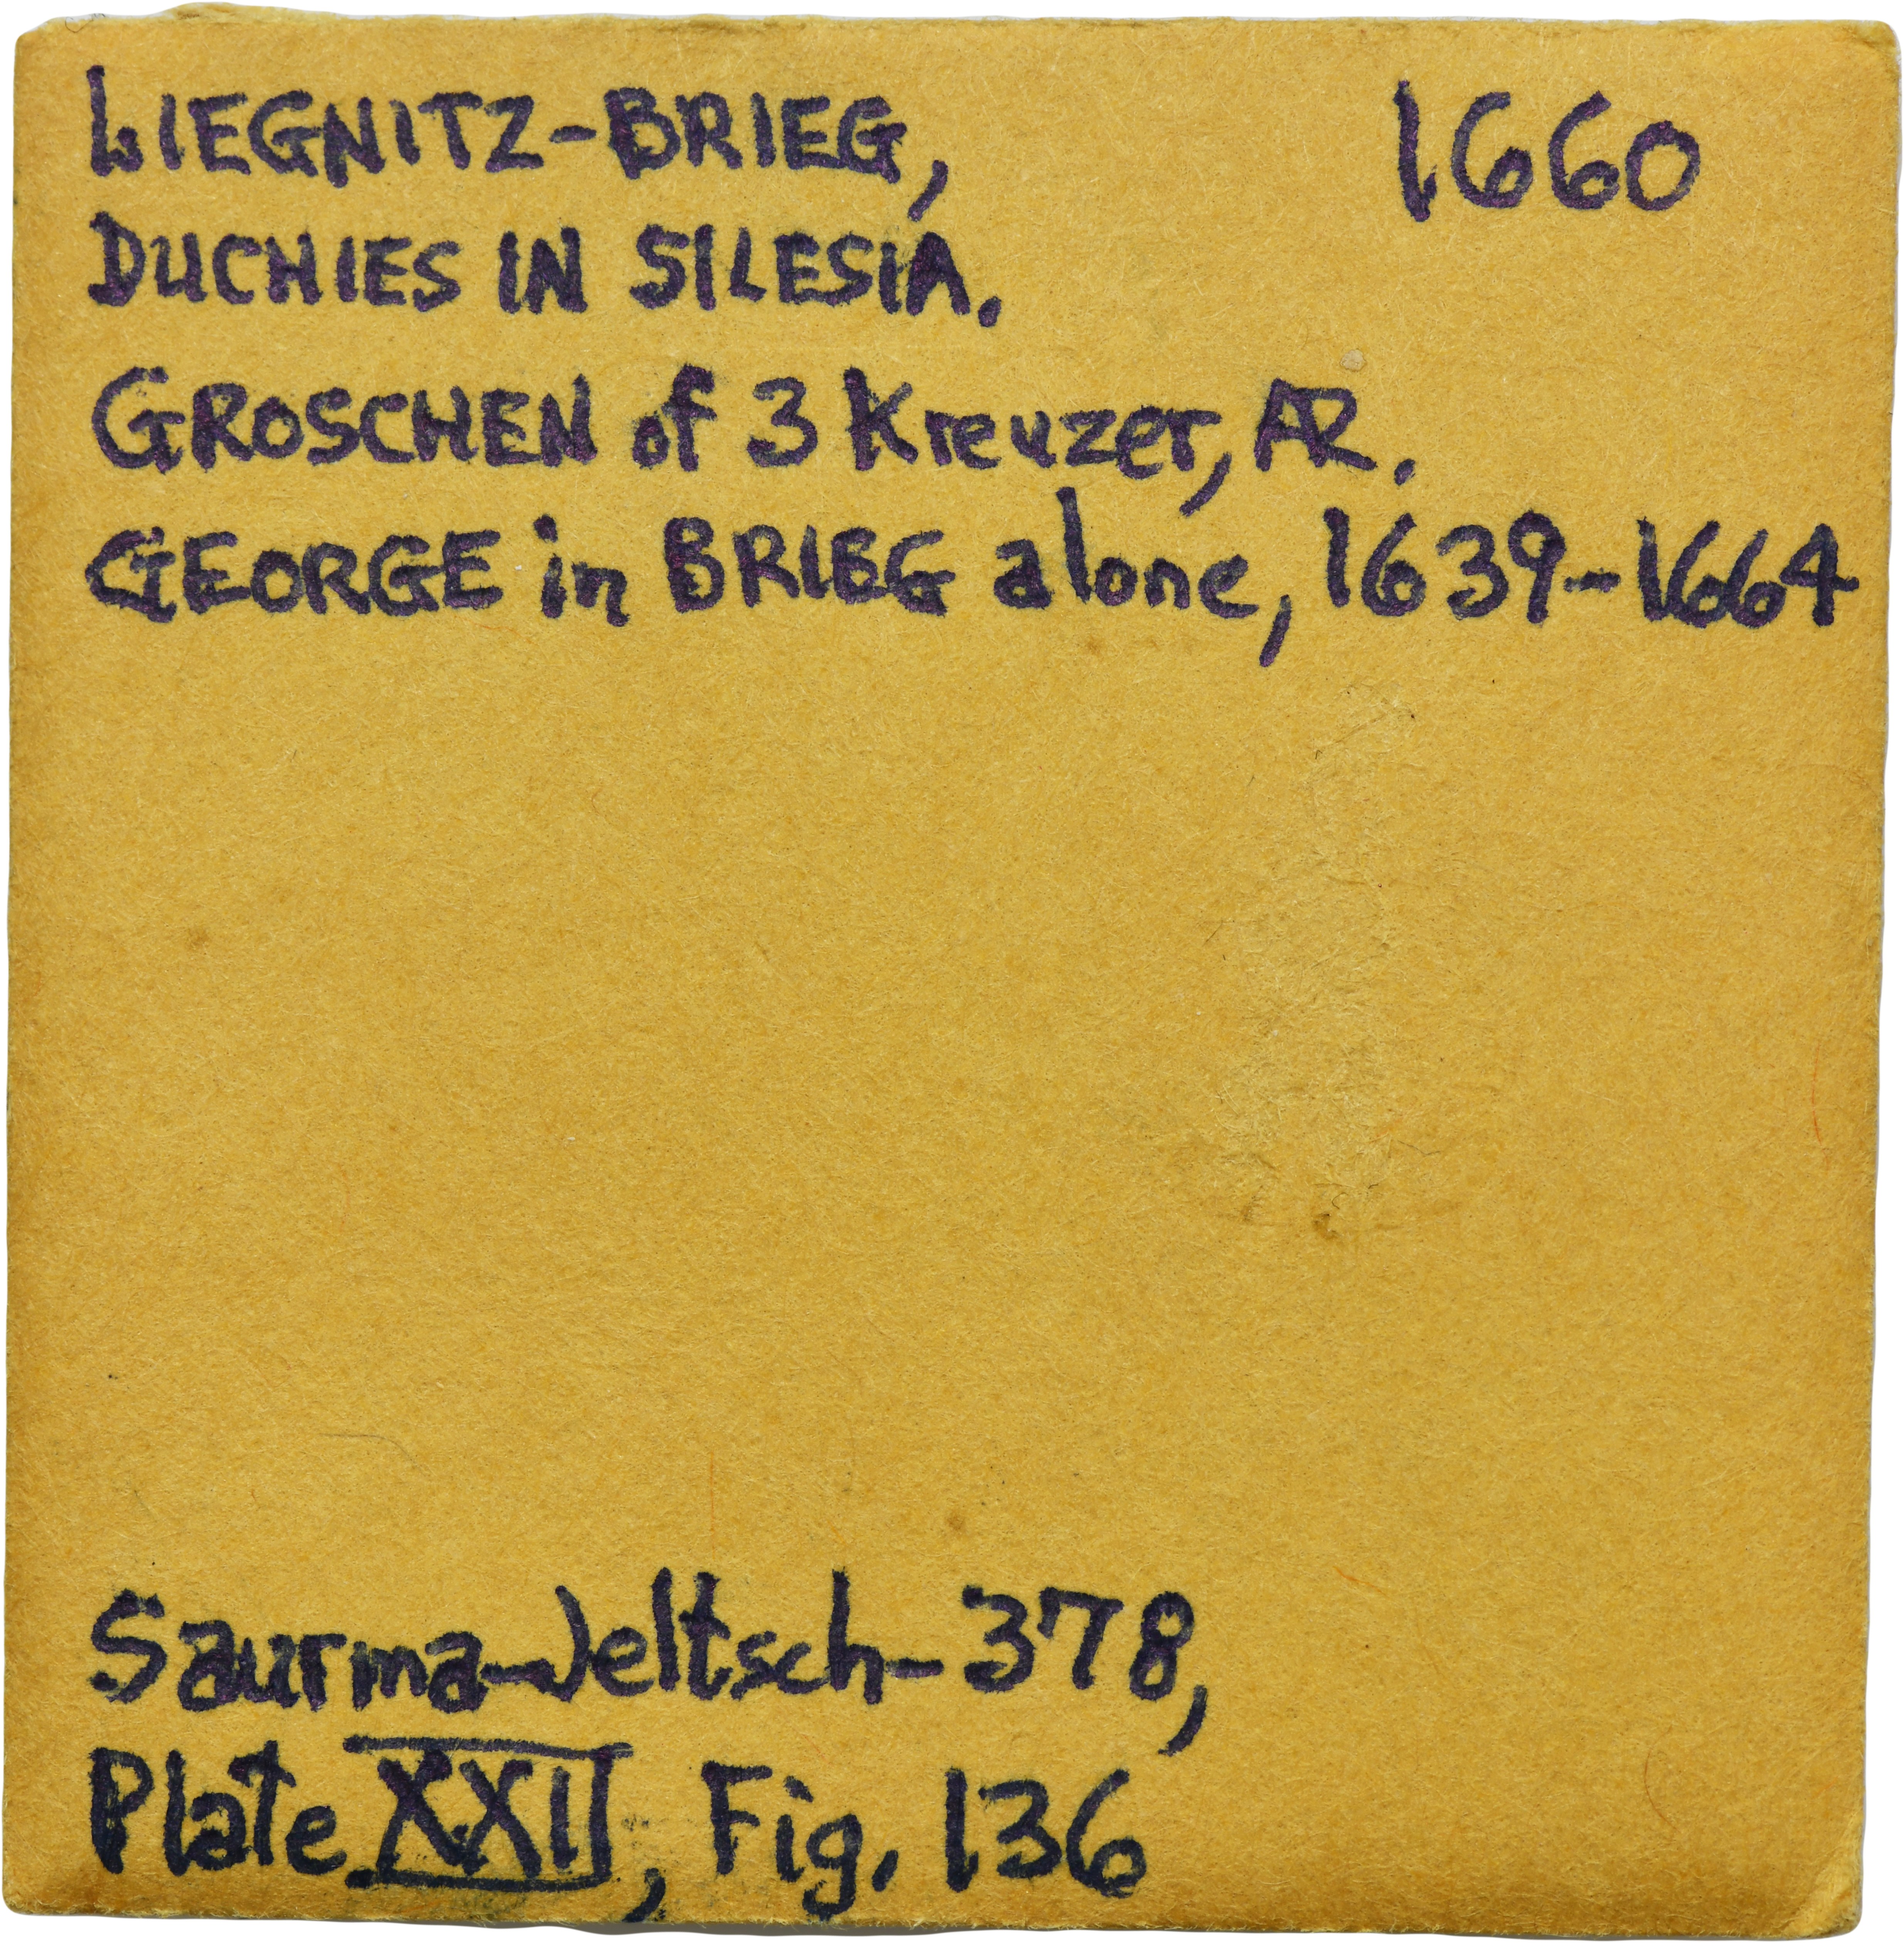 LIEGNITZ-BRIEG, 1660
DUCHIES IN SILESIA.
GROSCHEN of 3 Kreuzer, AR.
GEORGE in BRIEG alone, 1639-1664
Saurma-Jeltsch-378,
Plate XXII, Fig. 136